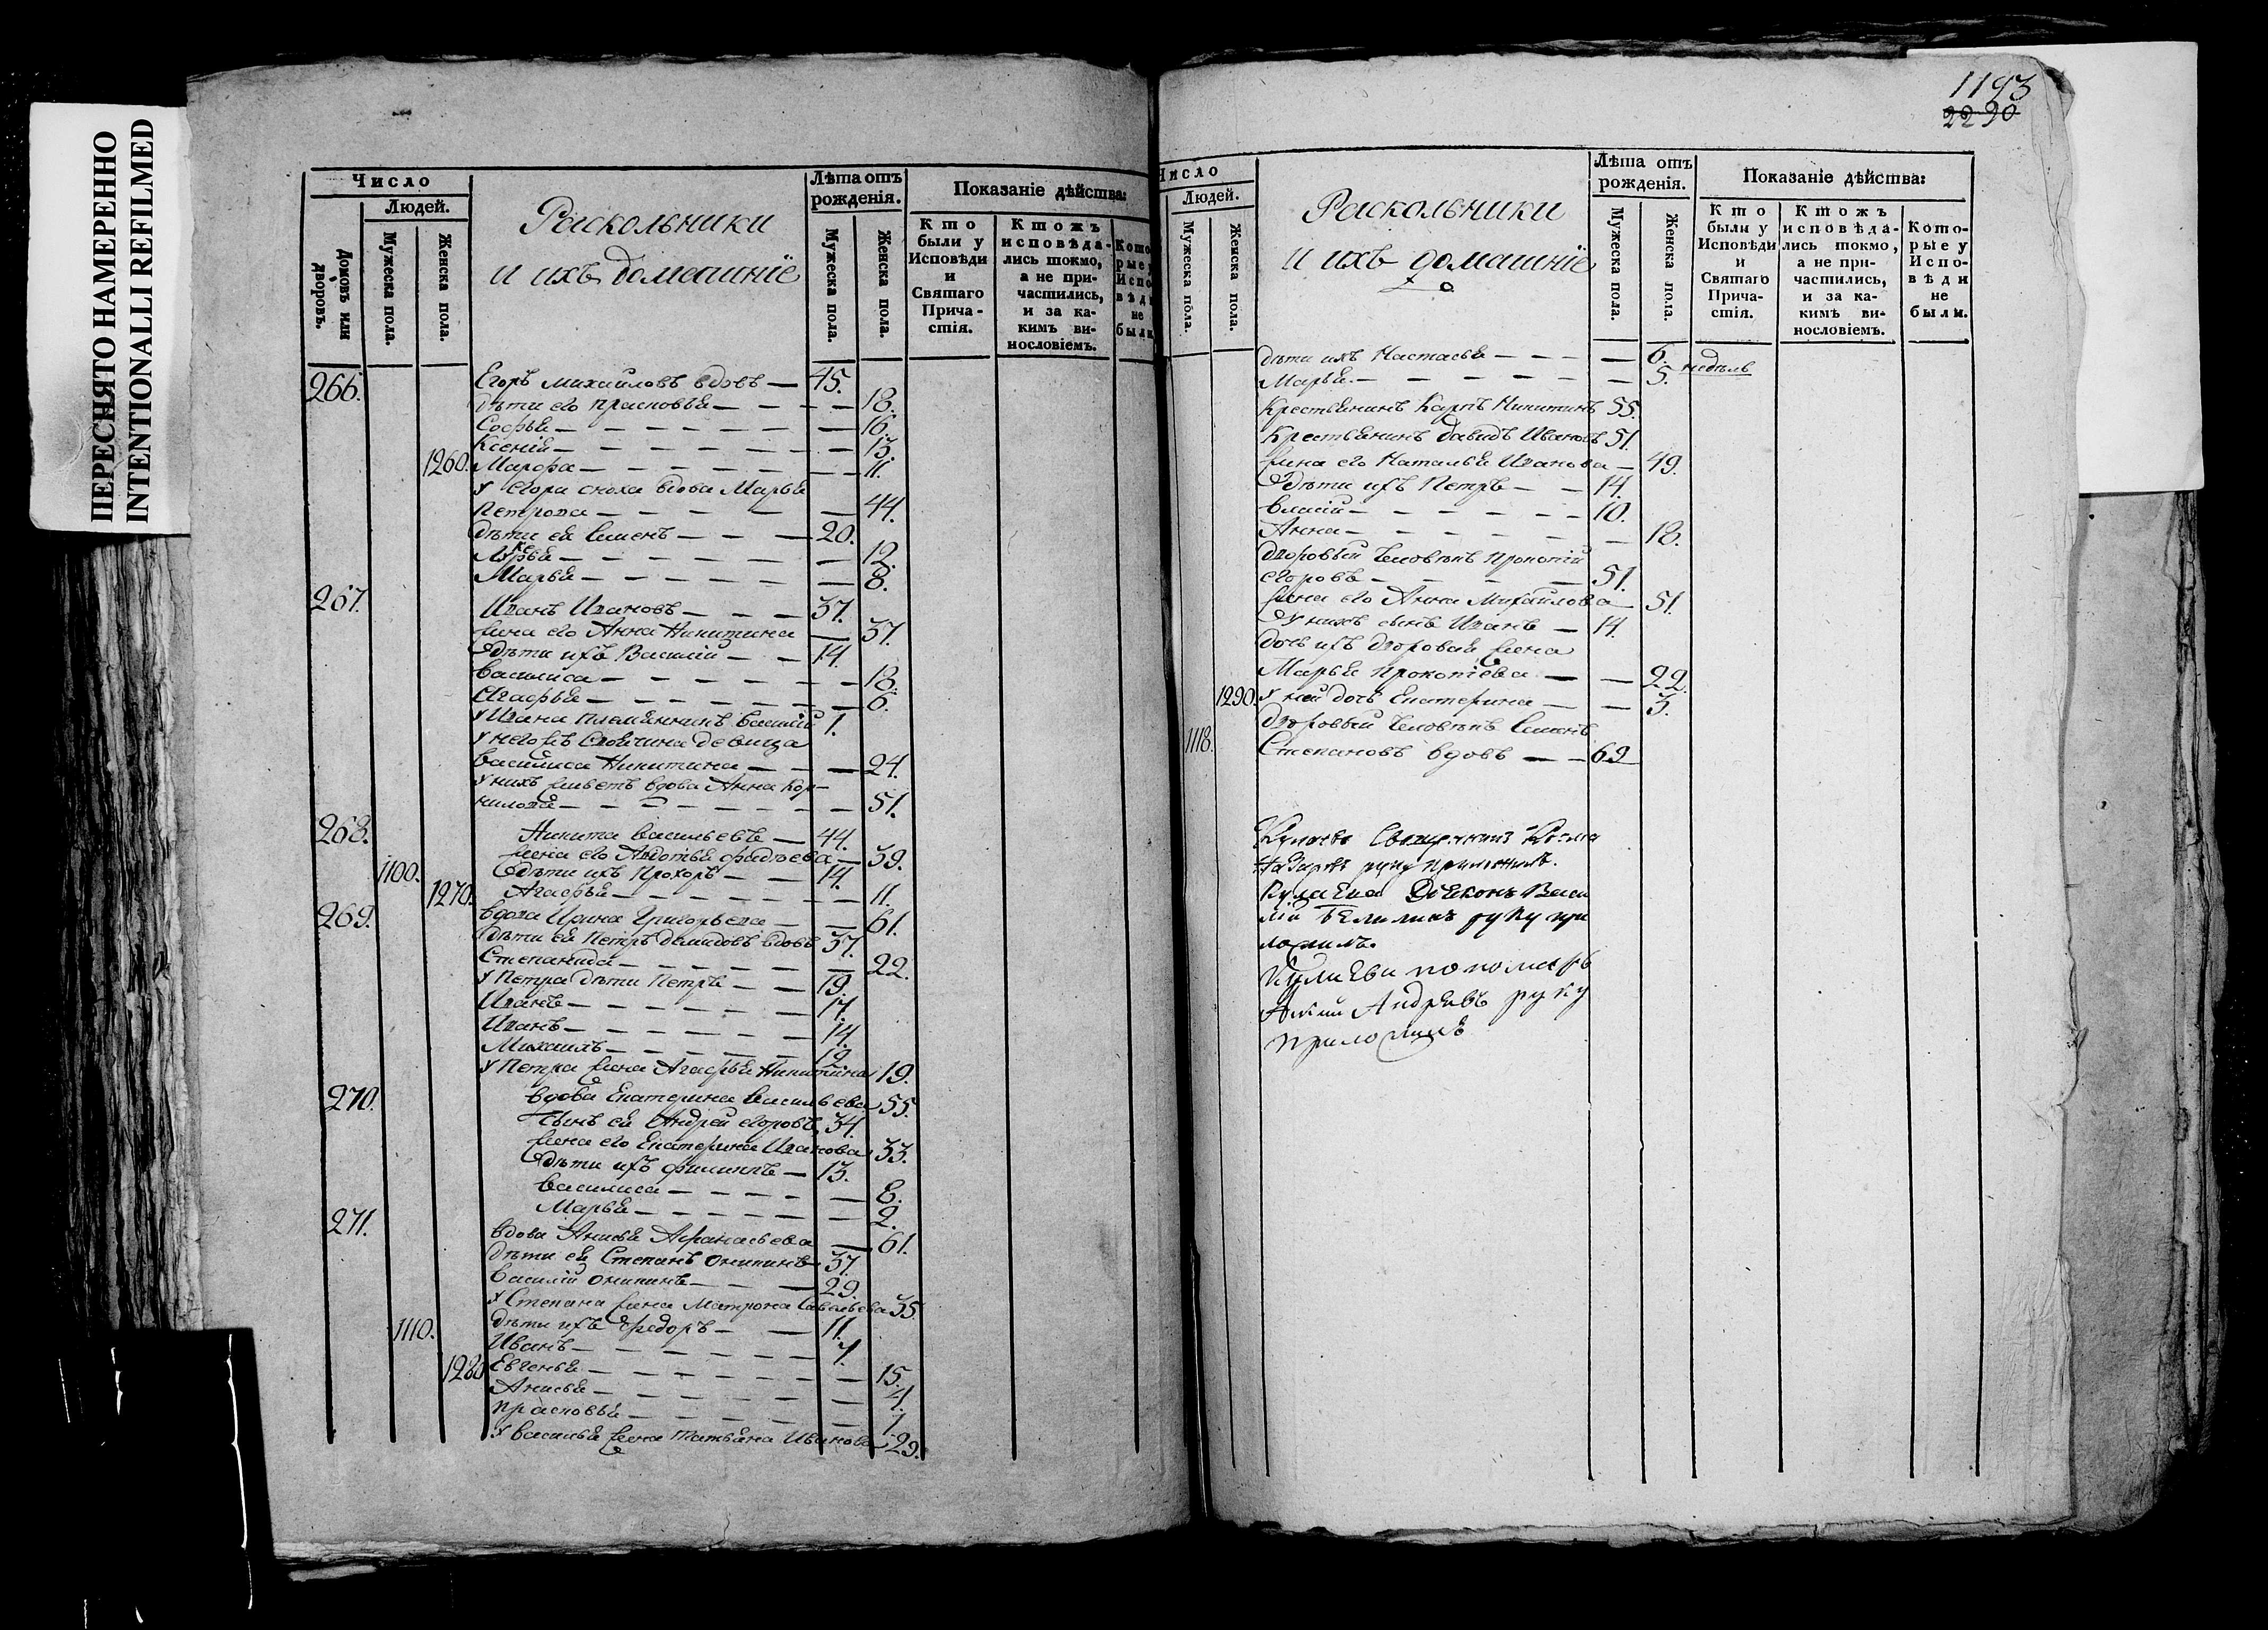 ПЕРЕСНЯТО НАМЕРЕННО
INTENTIONALLI REFILMED
Число
Людей.
Домовъ или дворовъ.
Мужеска пола.
Женска пола.
Раскольники
и ихъ домашнїе
Лѣта отъ рожденія.
Мужеска пола.
Женска пола.
Показаніе дѣйства:
Кто были у Исповѣди и Святаго Причастія.
Ктожъ исповѣдались токмо, а не причастились, и за какимъ винословіемъ.
Которые у Исповѣди не были
266. Егоръ михайловъ вдовъ — 45.
дѣти его прасковья — 18.
Софья — 16.
Ксенія — 13.
1260. Марфа — 11.
У егора сноха вдова Марья
Петрова — 44.
дѣти ея Семенъ — 20.
12.
Марья — 8.
267. Иванъ Ивановъ — 37.
жена его Анна Никитина — 37.
дѣти ихъ Василій — 14.
Василиса — 18.
Агафья — 6.
У Ивана племянникъ Василій 1.
У него жъ девица
Василиса Никитина — 24.
У нихъ живетъ вдова Анна Кор-
нилова — 51.
268. Никита Васильевъ — 44.
жена его Авдотья фадѣева — 39.
1100. дѣти ихъ Прохоръ — 14.
1270. Агафья — 11.
269. вдова Ирина Григорьева — 61.
дѣти ея Петръ демидовъ вдовъ 37.
Степанида — 22.
У Петра дѣти Петръ — 19.
Иванъ — 17.
Иванъ — 14.
Михаилъ — 12
У Петра жена Агафья Никитина 19.
270. вдова Екатерина Васильева 55.
Сынъ ея Андрей егоровъ 34.
жена его Екатерина Иванова 33.
дѣти ихъ филиппъ — 13.
Василиса — 8.
Марья — 2.
271. вдова Анисья Афанасьева — 61.
дѣти ея Степанъ Осиповъ 37.
Василій — 29.
У Степана жена Матрона Савельева 35.
1110. дѣти ихъ Федоръ — 11.
Иванъ — 7.
1280 Евгенья — 15.
Анисья — 4.
прасковья — 1.
У Василья жена Татьяна Иванова 29.
1193
2290
Число
Людей.
Мужеска пола.
Женска пола.
Раскольники
и ихъ домашнїе
Лѣта отъ рожденія.
Мужеска пола.
Женска пола.
Показаніе дѣйства:
Кто были у Исповѣди и Святаго Причастія.
Ктожъ исповѣдались токмо, а не причастились, и за какимъ винословіемъ.
Которые у Исповѣди не были.
дѣти ихъ Настасья — 6. недѣль
Марья — 5.
Крестьянинъ Карпъ Никитинъ 55.
Крестьянинъ давидъ Ивановъ 51.
жена его Наталья Иванова — 49.
дѣти ихъ Петръ — 14.
Власій — 10.
Анна — 18.
дворовый человѣкъ Прокопій
егоровъ — 51.
жена его Анна Михайлова — 51.
У нихъ сынъ Иванъ — 14.
дочь ихъ дворовая жена
Марья прокопіева — 22.
1290. У ней дочь Екатерина — 3.
дворовый человѣкъ Семенъ
1118. Степановъ вдовъ — 69
Священникъ Козма
руку приложилъ.
Діяконъ Васи
лій руку при
ложилъ.
пономарь
Андреевъ руку
приложилъ